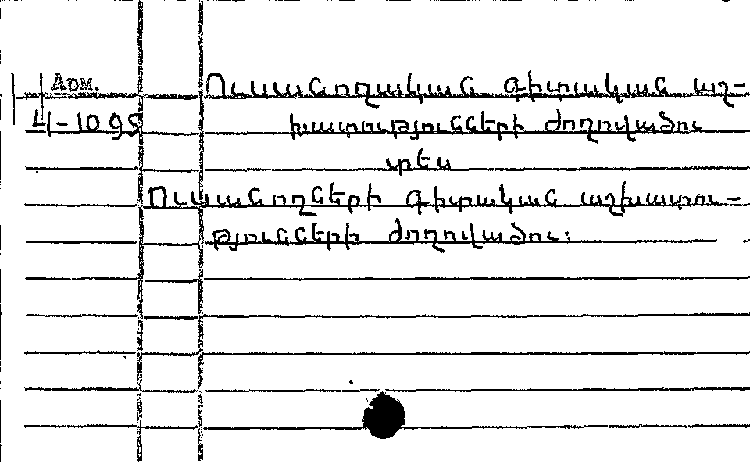 Арм.
Ուսանողական գիտական աշ-
4-1095
խատությունների ժողովածու
տես
Ուսանողների գիտական աշխատու-
թյունների ժողովածու։